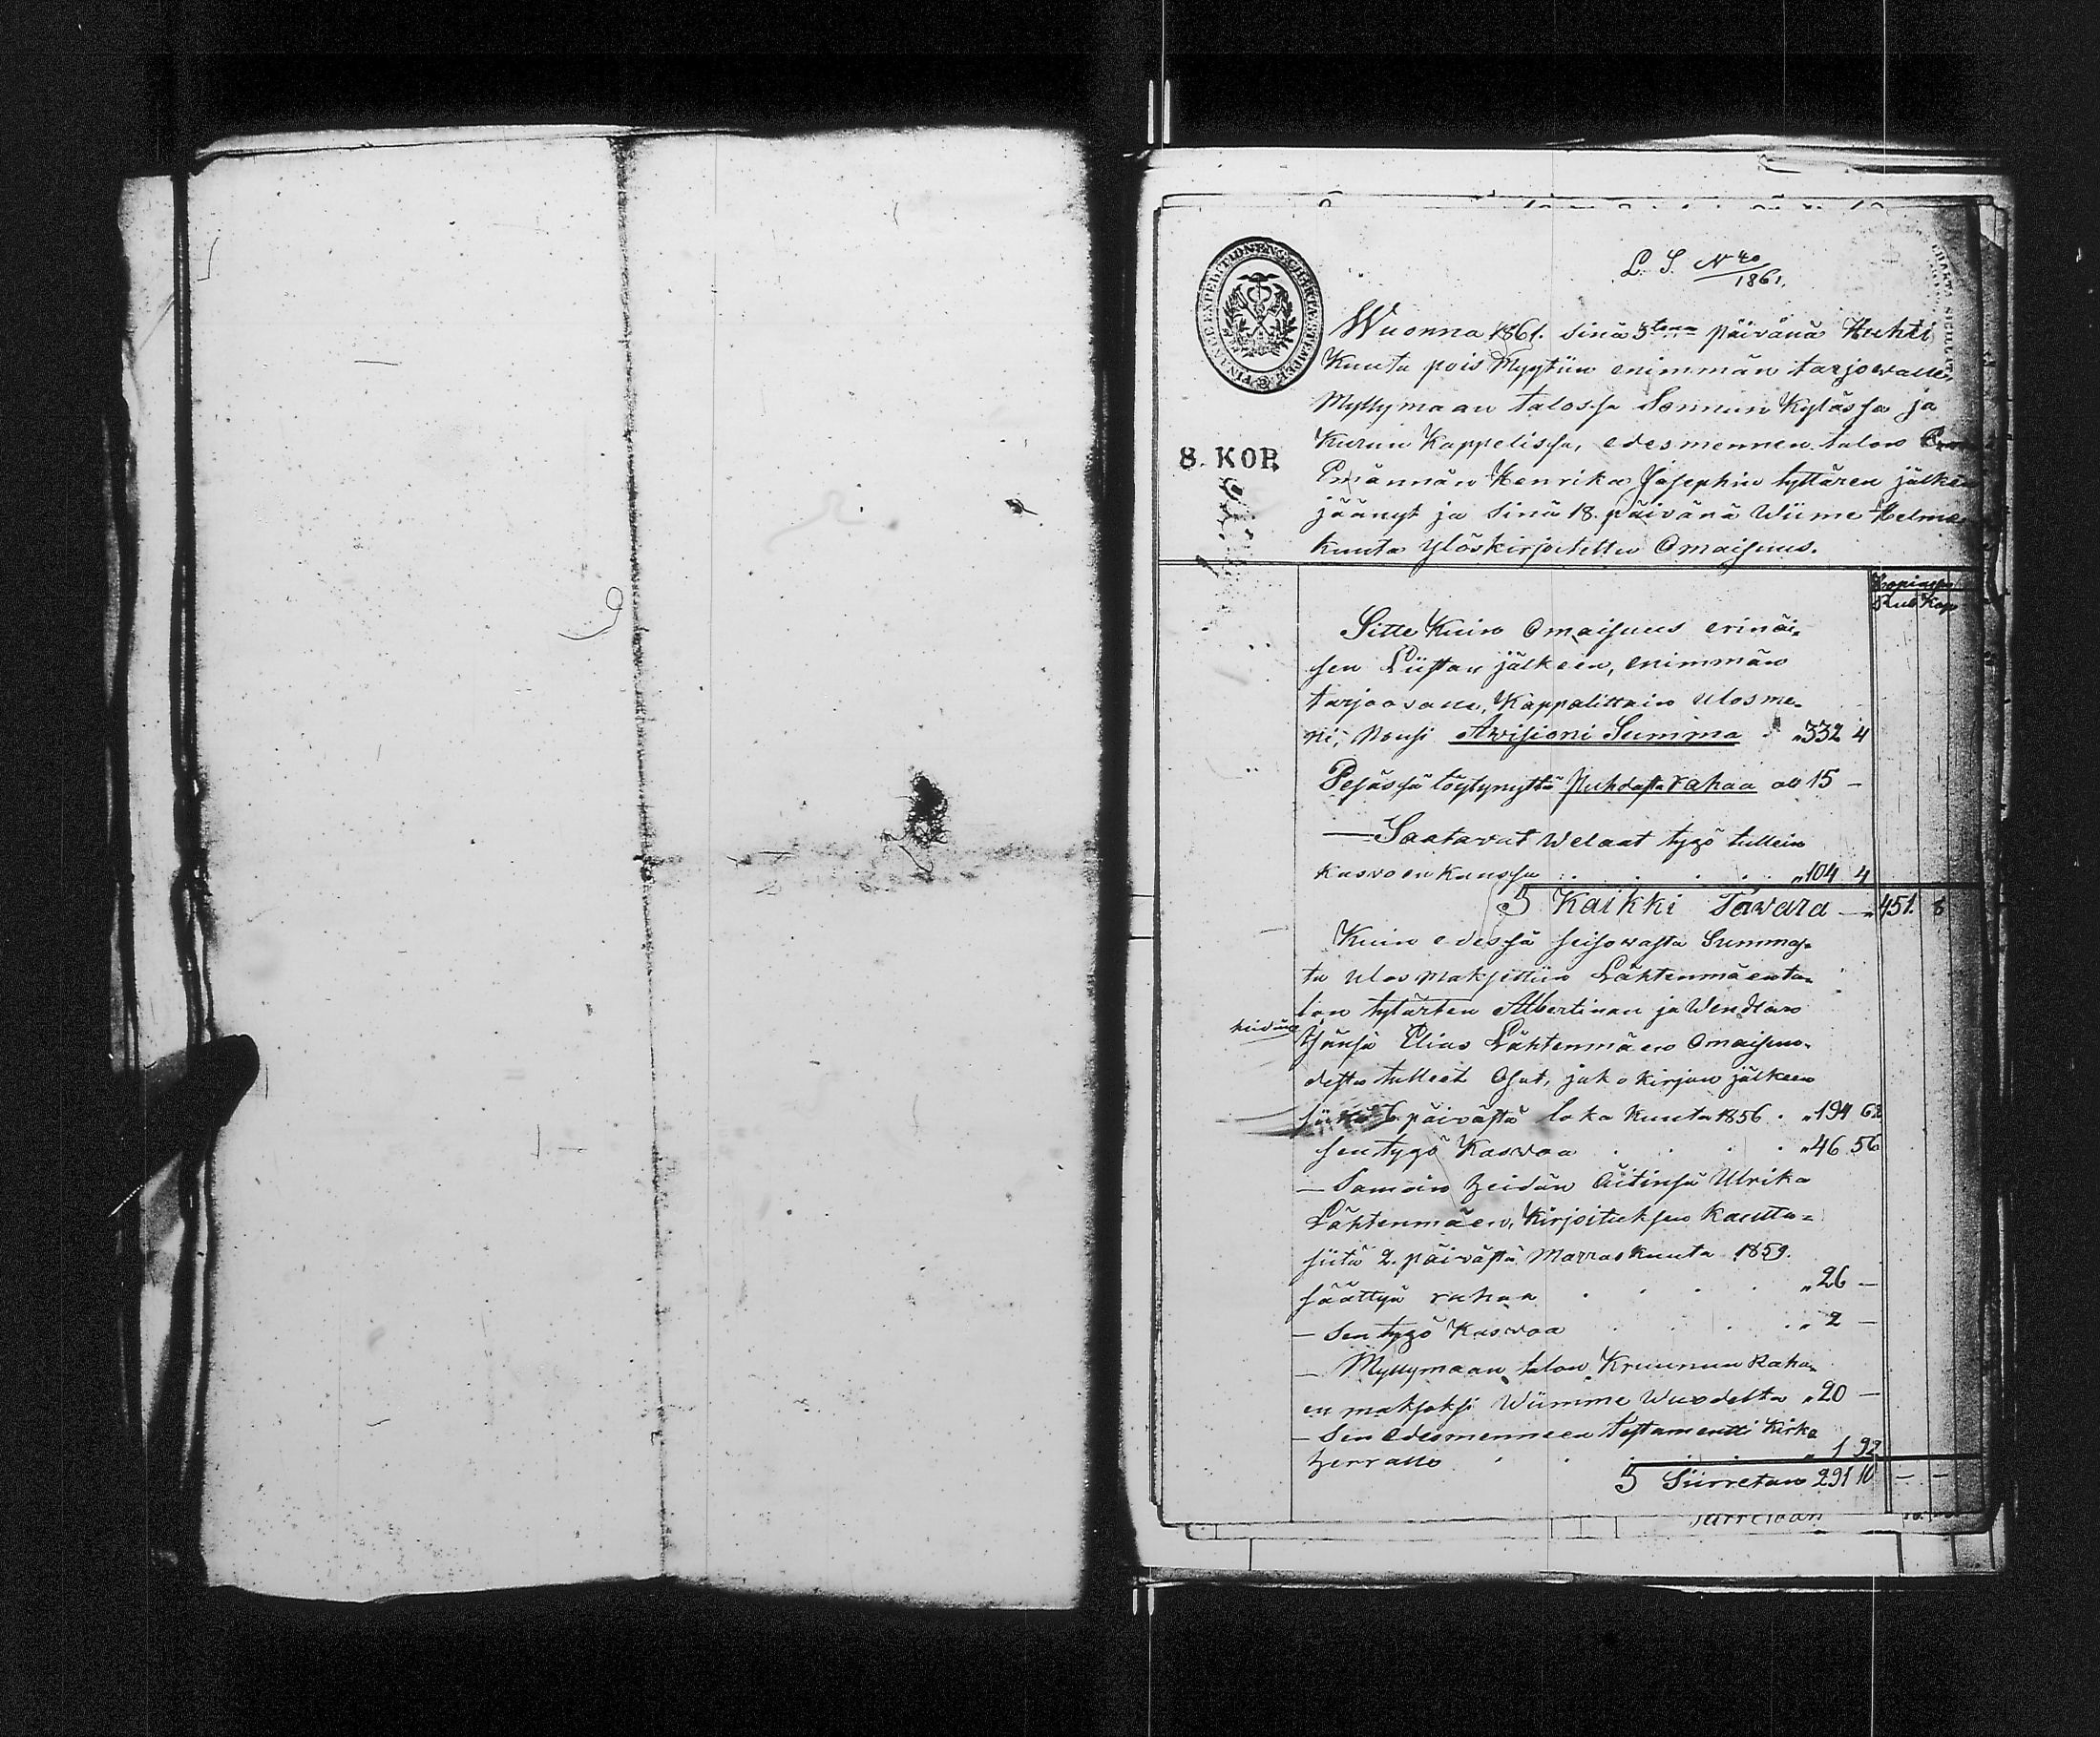 L. S. N 40
1861.
FINANCE EXPEDITIONENS
8. KOP.
Wuonna 1861. sinä 5tenä päivänä Huhti
Kuuta pois Myytiin enimmän tarjovalle,
Myllymaan talossa Sonnun Kylässä ja
Kurun Kappelissa, edesmennen talon
Emännän Henrika Josephin tyttären jälken
jäänyt ja sinä 18. päivänä Wiime Helme
kuuta Ylöskirjoitettu Omaisuus.
Rub Kop
Sitte Kuin Omaisuus erinäi-
sen Liistan jälkeen, enimmän
tarjoavalle, Kappalittain ulosme-
ni, Nousi Auvisioni Summa „332 4
Pesässä löytynyttä Puhdasta rahaa oli 15 —
— Saatavat Welaat työ tullein
kasvoen kanssa „104 4
S Kaikki Tavara — „451. 8
Kuin edessä seisovasta Summas-
ta ulos maksettiin Lähtenmäen ta-
lon tytärten Albertinan ja Wendlan
heidän
Isänsä Elias Lähtenmäen Omaisuu-
desta tulleet Osat, jako kirjan jälkeen
siitä 6 päivästä loka kuuta 1856 . „194 62
sen tygö Kasvoa „46 56
— Samoin heidän äitinsä Ulrika
Lähtenmäen, Kirjoituksen kautta-
siitä 2. päivästä Marraskuuta 1859.
säättyä rahaa „26 —
— Sen tygö Kasvoa „2 —
— Myllymaan talon Kruunun Raha-
en maksoksi Wiimme Wuodelta „20 —
— Sen edesmenneen Testamentti Kirko
herralle „1 92
S Siirretan 291 10 — —
Siirretään